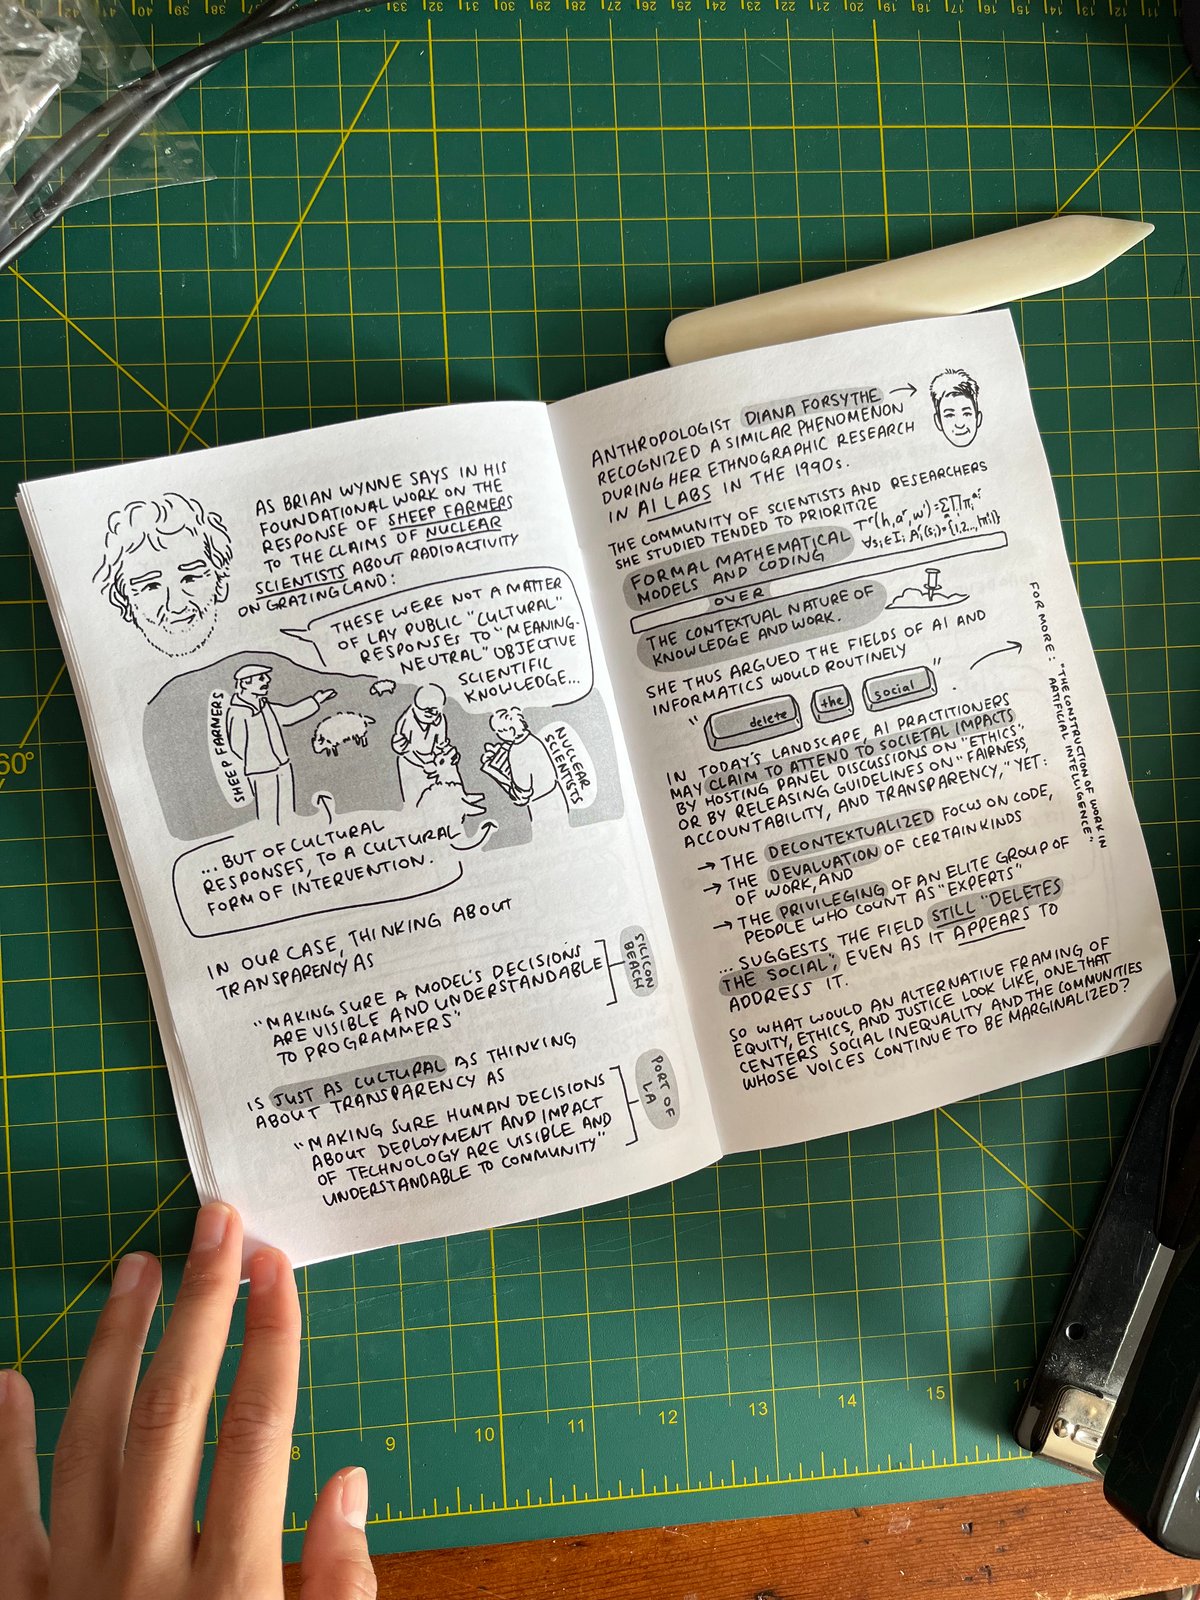 AS BRIAN WYNNE SAYS IN HIS
FOUNDATIONAL WORK ON THE
RESPONSE OF SHEEP FARMERS
TO THE CLAIMS OF NUCLEAR
SCIENTISTS ABOUT RADIOACTIVITY
ON GRAZING LAND:
THESE WERE NOT A MATTER
OF LAY PUBLIC "CULTURAL"
RESPONSES TO "MEANING-
NEUTRAL" OBJECTIVE
SCIENTIFIC
KNOWLEDGE...
SHEEP FARMERS
NUCLEAR
SCIENTISTS
...BUT OF CULTURAL
RESPONSES, TO A CULTURAL
FORM OF INTERVENTION.
IN OUR CASE, THINKING ABOUT
TRANSPARENCY AS
"MAKING SURE A MODEL'S DECISIONS
ARE VISIBLE AND UNDERSTANDABLE
TO PROGRAMMERS"
SILICON
BEACH
IS JUST AS CULTURAL AS THINKING
ABOUT TRANSPARENCY AS
"MAKING SURE HUMAN DECISIONS
ABOUT DEPLOYMENT AND IMPACT
OF TECHNOLOGY ARE VISIBLE AND
UNDERSTANDABLE TO COMMUNITY"
PORT OF
LA
ANTHROPOLOGIST DIANA FORSYTHE
RECOGNIZED A SIMILAR PHENOMENON
DURING HER ETHNOGRAPHIC RESEARCH
IN AI LABS IN THE 1990s.
THE COMMUNITY OF SCIENTISTS AND RESEARCHERS
SHE STUDIED TENDED TO PRIORITIZE
FORMAL MATHEMATICAL
MODELS AND CODING
OVER
THE CONTEXTUAL NATURE OF
KNOWLEDGE AND WORK.
SHE THUS ARGUED THE FIELDS OF AI AND
INFORMATICS WOULD ROUTINELY
"delete the social".
FOR MORE: "THE CONSTRUCTION OF WORK IN
ARTIFICIAL INTELLIGENCE"
IN TODAY'S LANDSCAPE, AI PRACTITIONERS
MAY CLAIM TO ATTEND TO SOCIETAL IMPACTS
BY HOSTING PANEL DISCUSSIONS ON "ETHICS"
OR BY RELEASING GUIDELINES ON "FAIRNESS,
ACCOUNTABILITY, AND TRANSPARENCY," YET:
→ THE DECONTEXTUALIZED FOCUS ON CODE,
→ THE DEVALUATION OF CERTAIN KINDS
OF WORK, AND
→ THE PRIVILEGING OF AN ELITE GROUP OF
PEOPLE WHO COUNT AS "EXPERTS"
...SUGGESTS THE FIELD STILL "DELETES
THE SOCIAL", EVEN AS IT APPEARS TO
ADDRESS IT.
SO WHAT WOULD AN ALTERNATIVE FRAMING OF
EQUITY, ETHICS, AND JUSTICE LOOK LIKE, ONE THAT
CENTERS SOCIAL INEQUALITY AND THE COMMUNITIES
WHOSE VOICES CONTINUE TO BE MARGINALIZED?
60°
8 9 10 11 12 13 14 15